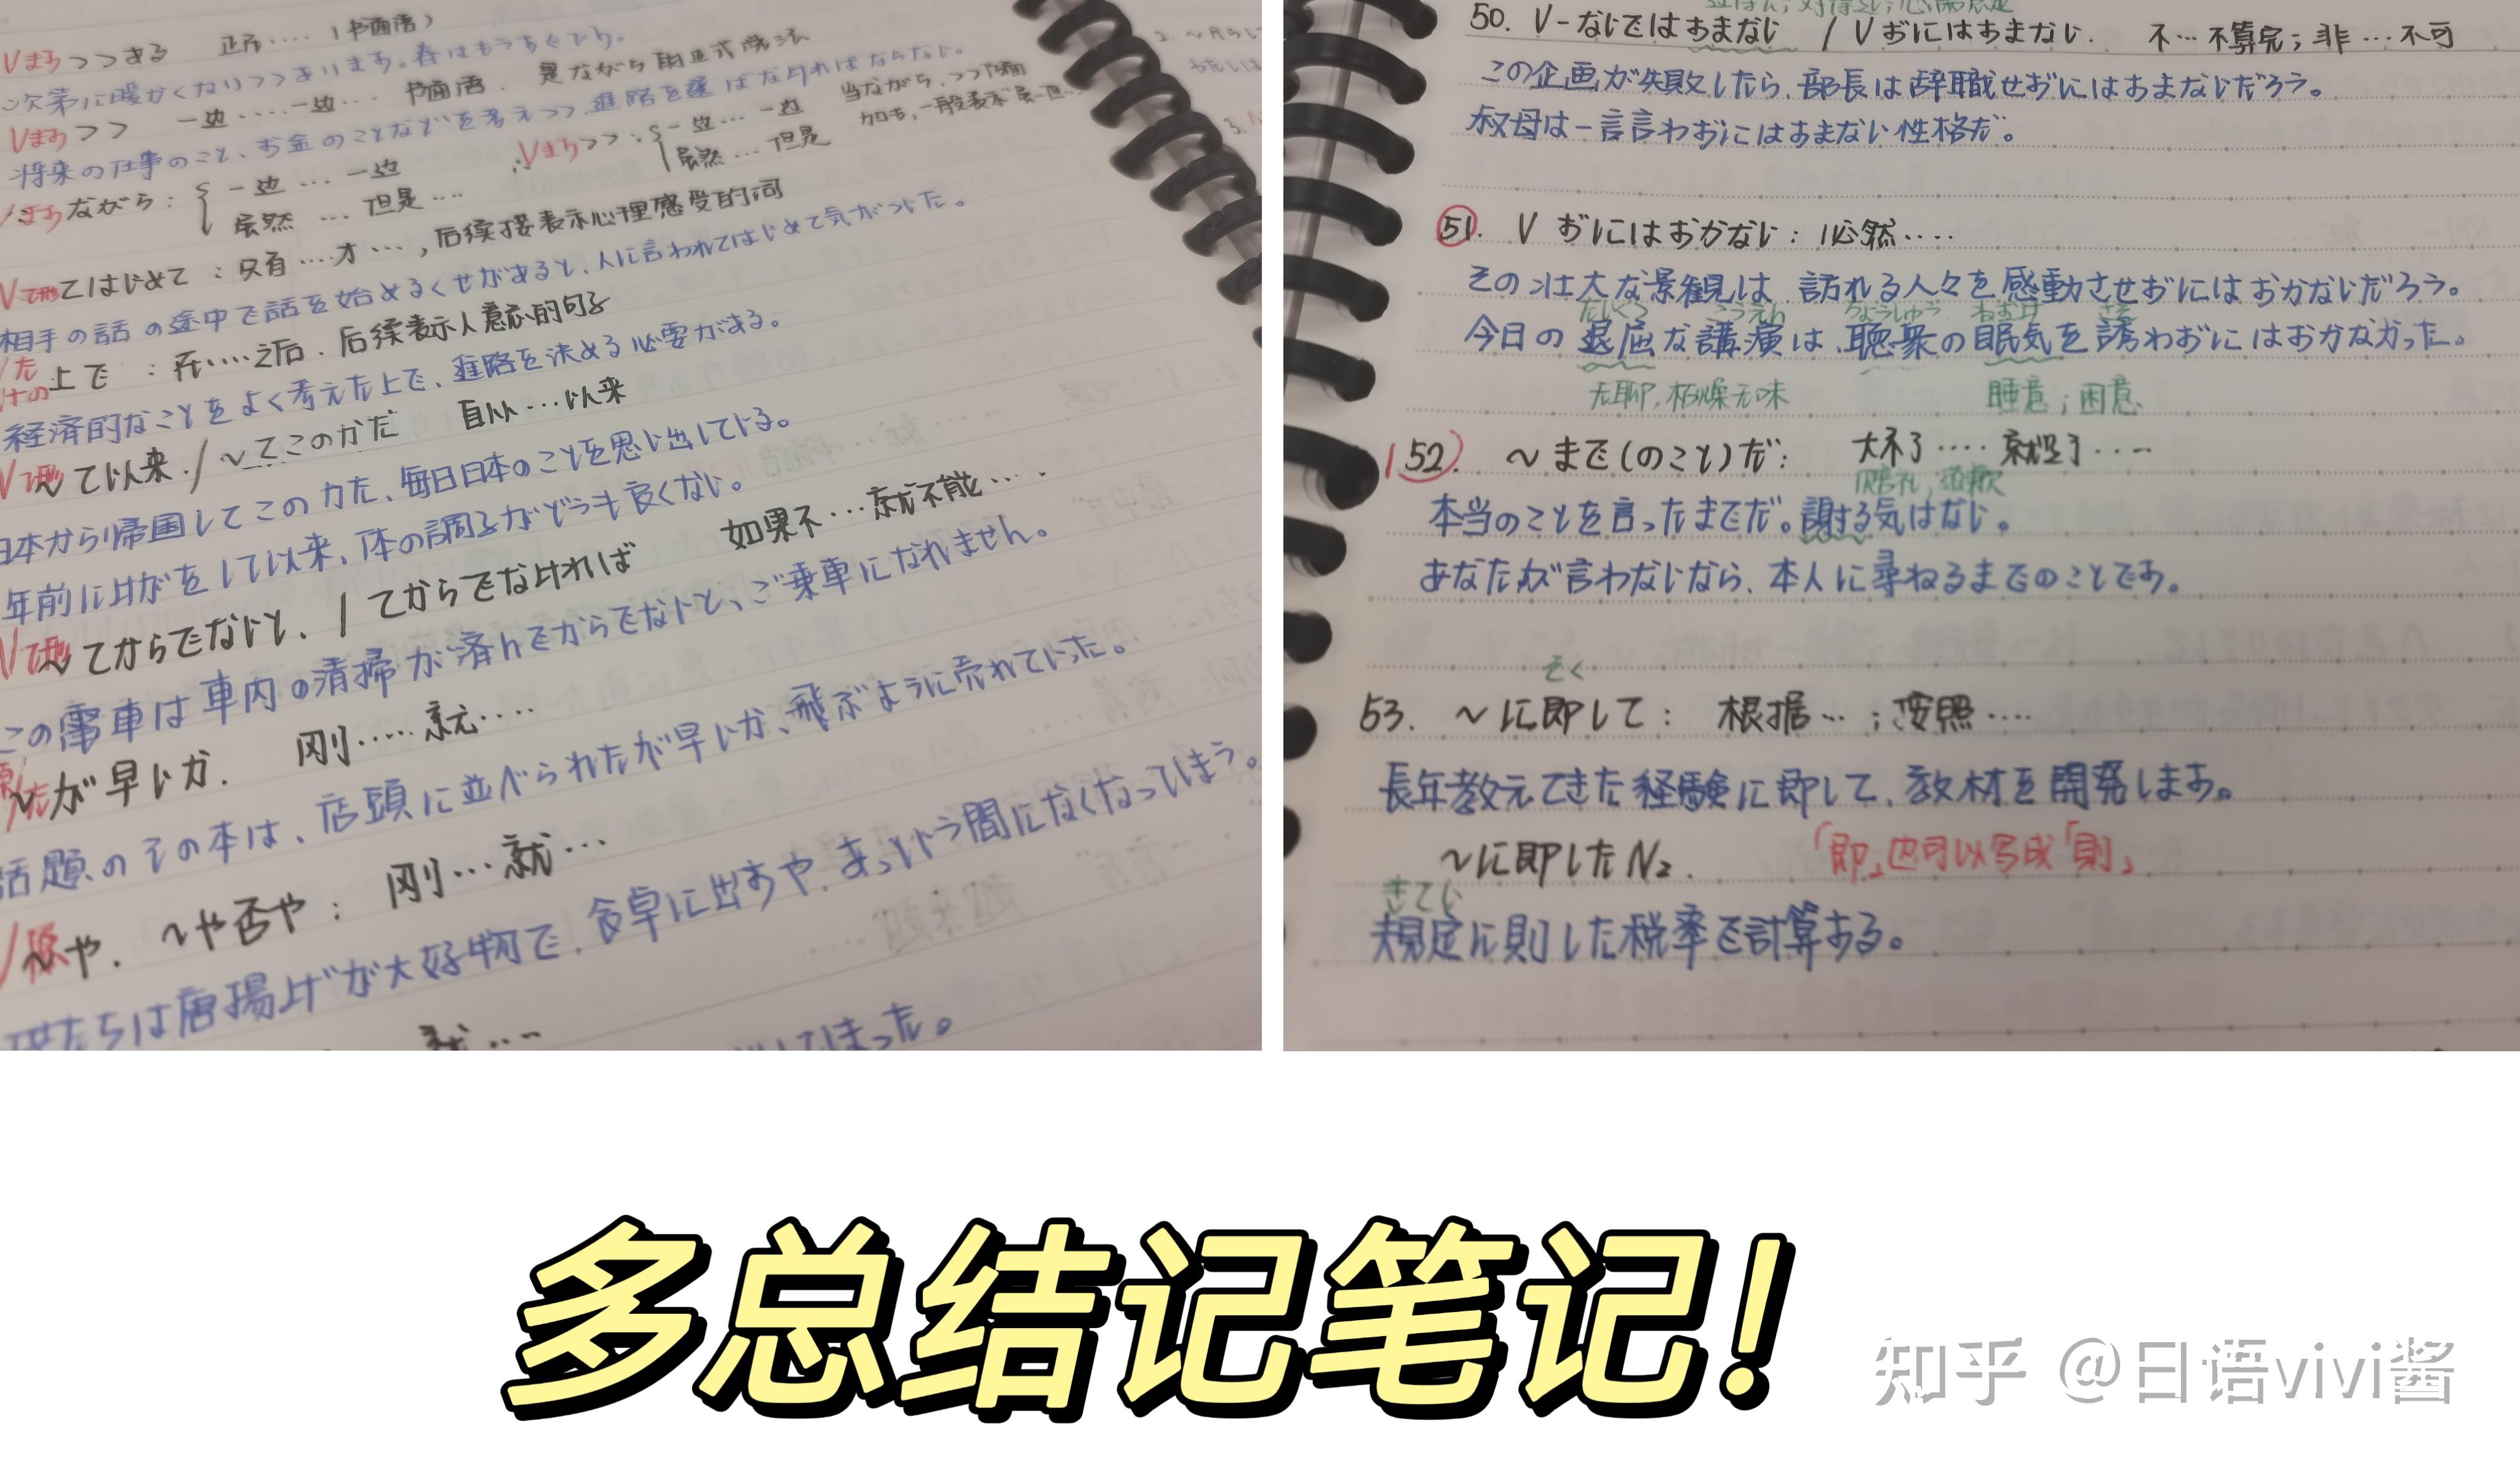 Vますつつある 正在…. (书面语)
次第に暖かくなりつつあります。春はもうすぐです。
Vますつつ 一边….一边… 书面语. 是ながら的正式说法
将来の仕事のこと、お金のことなどを考えつつ、進路を選ばなければならない。
Vますながら: 一边…一边
虽然…但是….
∴Vますつつ: 一边…一边
虽然…但是
Vて形てはじめて:只有….才…,后续接表示心理感受的词
相手の話の途中で話を始めるくせがあると、人に言われてはじめて気がついた。
Vた
Nの上で :在….之后. 后续表示人意志的句子
経済的なことをよく考えた上で、進路を決める必要がある。
Vて形て以来./~てこのかた 自从…以来
日本から帰国してこのかた、毎日日本のことを思い出している。
年前にけがをして以来、体の調子がどうも良くない。
Vて形てからでないと、/てからでなければ 如果不…就不能….
この電車は車内の清掃が済んでからでないと、ご乗車になれません。
~が早いか. 刚….就….
話題のその本は、店頭に並べられたが早いか、飛ぶように売れていった。
V原や. ~や否や: 刚…就…
たちは唐揚げが大好物で、食卓に出すや、あっという間になくなってしまう。
就….
てしまった。
50. V-ないではすまない / Vずにはすまない. 不…不算完;非…不可
この企画が失敗したら、部長は辞職せずにはすまないだろう。
叔母は一言言わずにはすまない性格だ。
51. V ずにはおかない: 必然….
その壮大な景観は 訪れる人々を感動させずにはおかないだろう。
たいくつ こうえん ちょうしゅう ねむけ さそ
今日の退屈な講演は、聴衆の眠気を誘わずにはおかなかった。
无聊,枯燥无味 睡意;困意
52. ~まで(のこと)だ: 大不了….就是了…
赔礼,道歉
本当のことを言ったまでだ。謝する気はない。
あなたが言わないなら、本人に尋ねるまでのことです。
そく
53. ~に即して: 根据…;按照….
長年教えてきた経験に即して、教材を開発します。
~に即したN₂. 「即」也可以写成「則」
きてい
規定に則した税率で計算する。
多总结记笔记!
知乎 @日语vivi酱